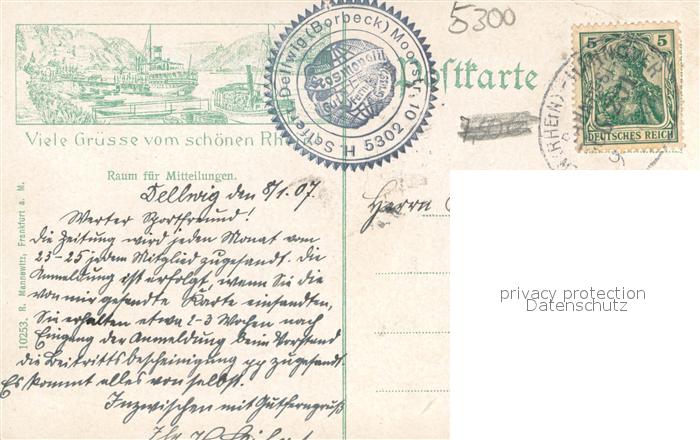 5300
Postkarte
5 5
DEUTSCHES REICH
H. Dellwig (Borbeck) Moosstr. 10 5302
Cosmopolit
(RHEIN)
Viele Grüsse vom schönen Rh
Raum für Mitteilungen.
10253. R. Mannewitz, Frankfurt a. M.
Dellwig den 8/1.07.
Werter Sportfreund!
Die Zeitung wird jeden Monat vom
23-25 jedem Mitglied zugesandt. Die
Anmeldung ist erfolgt, wenn Sie die
von mir gesandte Karte einsandten,
Sie erhalten etwa 2-3 Wochen nach
Eingang der Anmeldung beim Vorstand
die Beitrittsbescheinigung pp zugesandt.
Es kommt alles von selbst.
Inzwischen mit Gutferngruß
Ihr H.
Herrn
privacy protection
Datenschutz